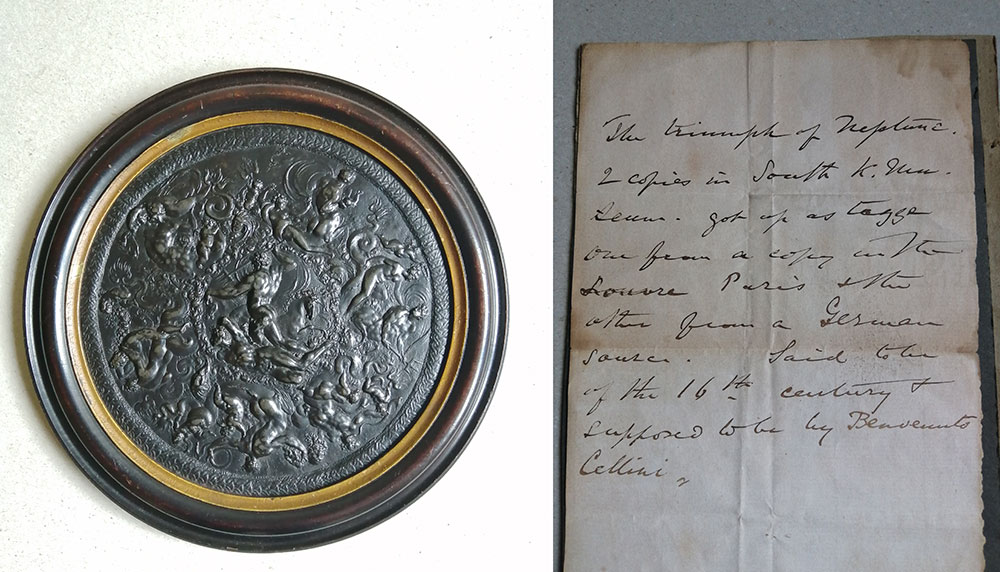 The triumph of Neptune.
2 copies in South K. Mu-
seum. got up as
one from a copy in the
Louvre Paris & the
other from a German
source. Said to be
of the 16th century &
supposed to be by Benvenuto
Cellini